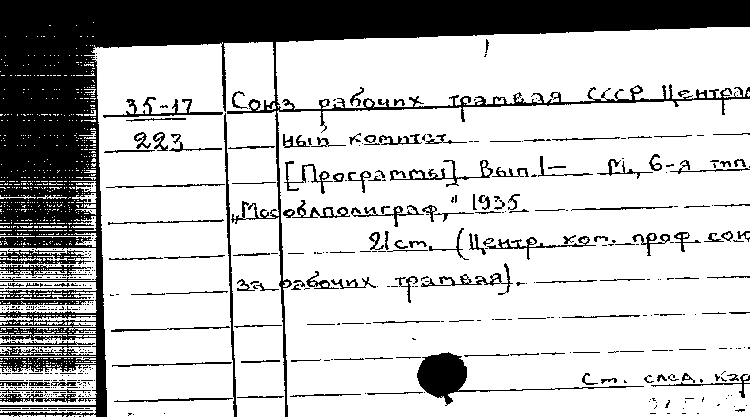 35-17 Союз рабочих трамвая СССР. Централ
223 ный комитет.
[Программы]. Вып. 1— М., 6-я тип.
„Мособлполиграф," 1935.
21 ст. (Центр. ком. проф. сою
за рабочих трамвая).
Ст. след. кар